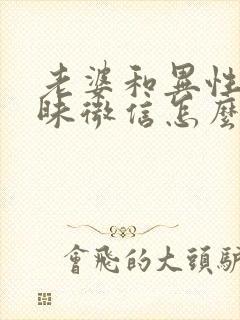 老婆和異性
昧微信怎麼
會飛的大頭驢